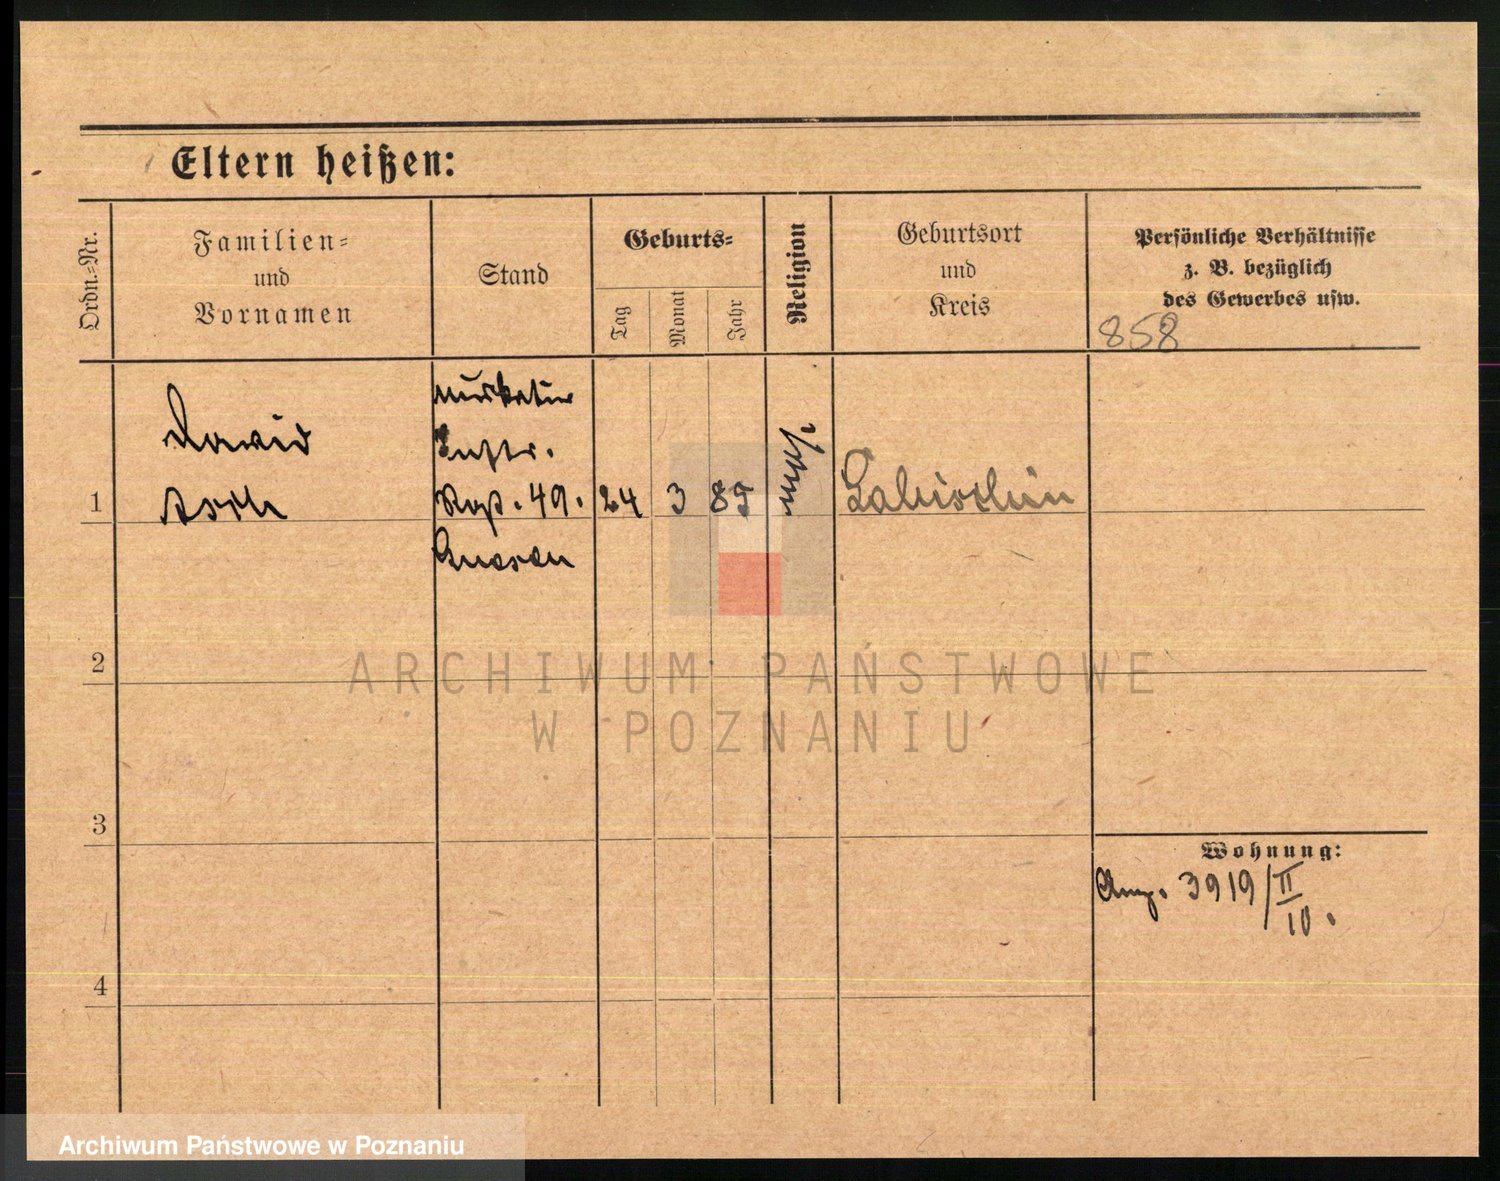 Eltern heißen:
Ordn.-Nr.
Familien-
und
Vornamen
Stand
Geburts-
Tag
Monat
Jahr
Religion
Geburtsort
und
Kreis
Persönliche Verhältnisse
z. B. bezüglich
des Gewerbes usw.
858
1
David
Asch
Musketier
Inftr.
Regt. 49.
Gnesen
24
3
85
Labischin
2
3
4
Wohnung:
3919/II
10.
ARCHIWUM PAŃSTWOWE
W POZNANIU
Archiwum Państwowe w Poznaniu